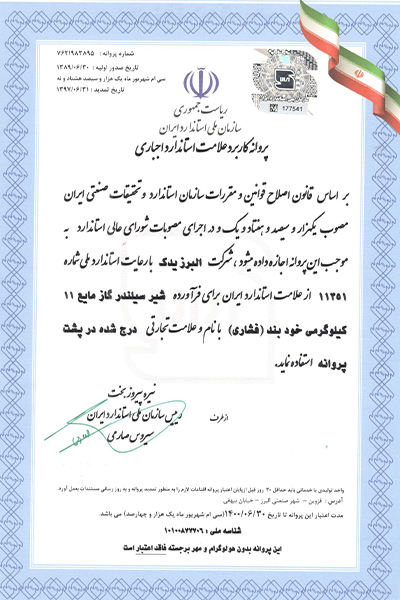 شماره پروانه : ۷۶۲۱۹۸۳۸۹۵
تاریخ صدور اولیه : ۱۳۸۹/۰۶/۳۰
سی ام شهریور ماه یک هزار و سیصد هشتاد و نه
تاریخ تمدید : ۱۳۹۷/۰۶/۳۱
177541
ریاست جمهوری
سازمان ملی استاندارد ایران
پروانه کاربرد علامت استاندارد اجباری
بر اساس قانون اصلاح قوانین و مقررات سازمان استاندارد و تحقیقات صنعتی ایران
مصوب یکهزار و سیصد و هفتاد و یک و در اجرای مصوبات شورای عالی استاندارد به
موجب این پروانه اجازه داده میشود ، شرکت البرز یدک با رعایت استاندارد ملی شماره
۱۱۳۵۱ از علامت استاندارد ایران برای فرآورده شیر سیلندر گاز مایع ۱۱
کیلوگرمی خود بند (فشاری) با نام و علامت تجارتی درج شده در پشت
پروانه استفاده نماید.
نیره پیروز بخت
رییس سازمان ملی استاندارد ایران
از طرف
سیروس صارمی
واحد تولیدی یا خدماتی باید حداقل ۳۰ روز قبل از پایان اعتبار پروانه اقدامات لازم را به منظور تمدید پروانه و به روز رسانی مستندات بعمل آورد.
آدرس : قزوین - شهر صنعتی البرز - خیابان بیهقی
مدت اعتبار این پروانه تا تاریخ ۱۴۰۰/۰۶/۳۰(سی ام شهریور ماه یک هزار و چهارصد) می باشد.
شناسه ملی : ۱۰۱۰۰۸۷۷۷۰۶
این پروانه بدون هولوگرام و مهر برجسته فاقد اعتبار است